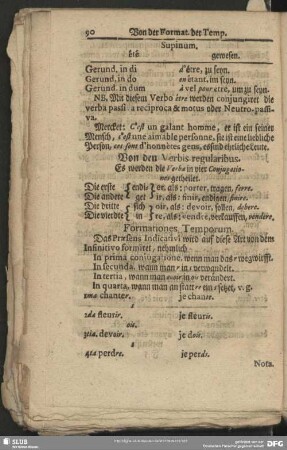 90 Von der Format. der Temp.
Supinum,
été gewesen.
Gerund. in di d'étre, zu seyn.
Gerund. in do en étant, im seyn.
Gerund. in dum à vel pour etre, um zu seyn.
NB. Mit diesem Verbo être werden conjungiret die
verba passiva reciproca & motus oder Neutro-passi-
va.
Mercket: C'est un galant homme, er ist ein feiner
Mensch, c'est une aimable personne, sie ist eine liebliche
Person, ce sont d'honnètes gens, es sind ehrliche Leute.
Von den Verbis regularibus.
Es werden die Verba in vier Conjugatio-
nes getheilet.
Die erste endi er, als: porter, tragen, ferre.
Die andere get ir, als: finir, endigen, finire.
Die dritte sich oir, als: devoir, sollen, debere.
Die vierdte in re, als: vendre, verkauffen, vendere.
Formationes Temporum.
Das Præsens Indicativi wird auf diese Art von dem
Infinitivo formiret, nehmlich:
In prima conjugatione, wenn man das r wegwirfft.
In secunda, wann man r in s verwandelt.
In tertia, wann man evoir in oi verändert.
In quarta, wann man an statt re ein s setzet, v. g.
1ma chanter. je chante.
s
2da fleurir. je fleuris.
ois.
3tia. devoir. je dois.
s
4ta perdre. je perds.
Nota.
SLUB
DFG